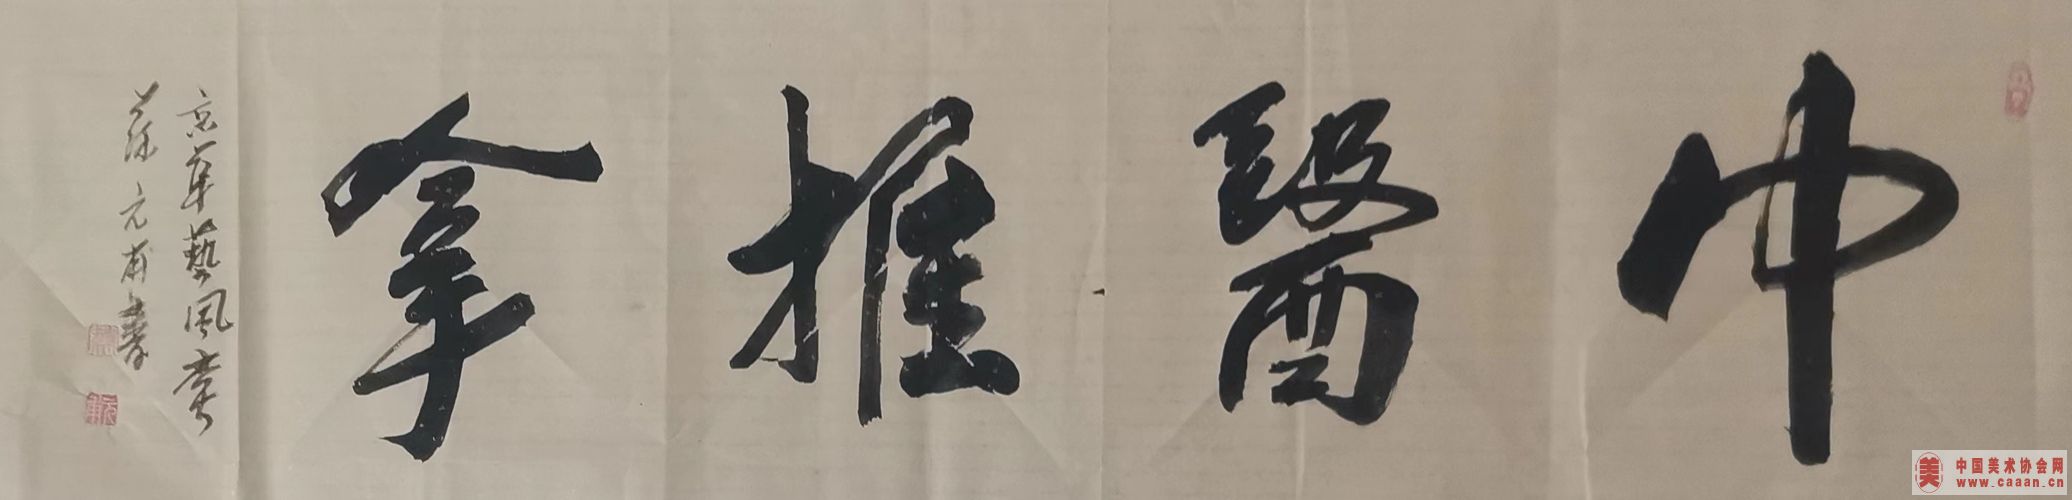 中醫推拿
京华藝風斋
蘇元甫書
中国美术协会网
www.caaan.cn